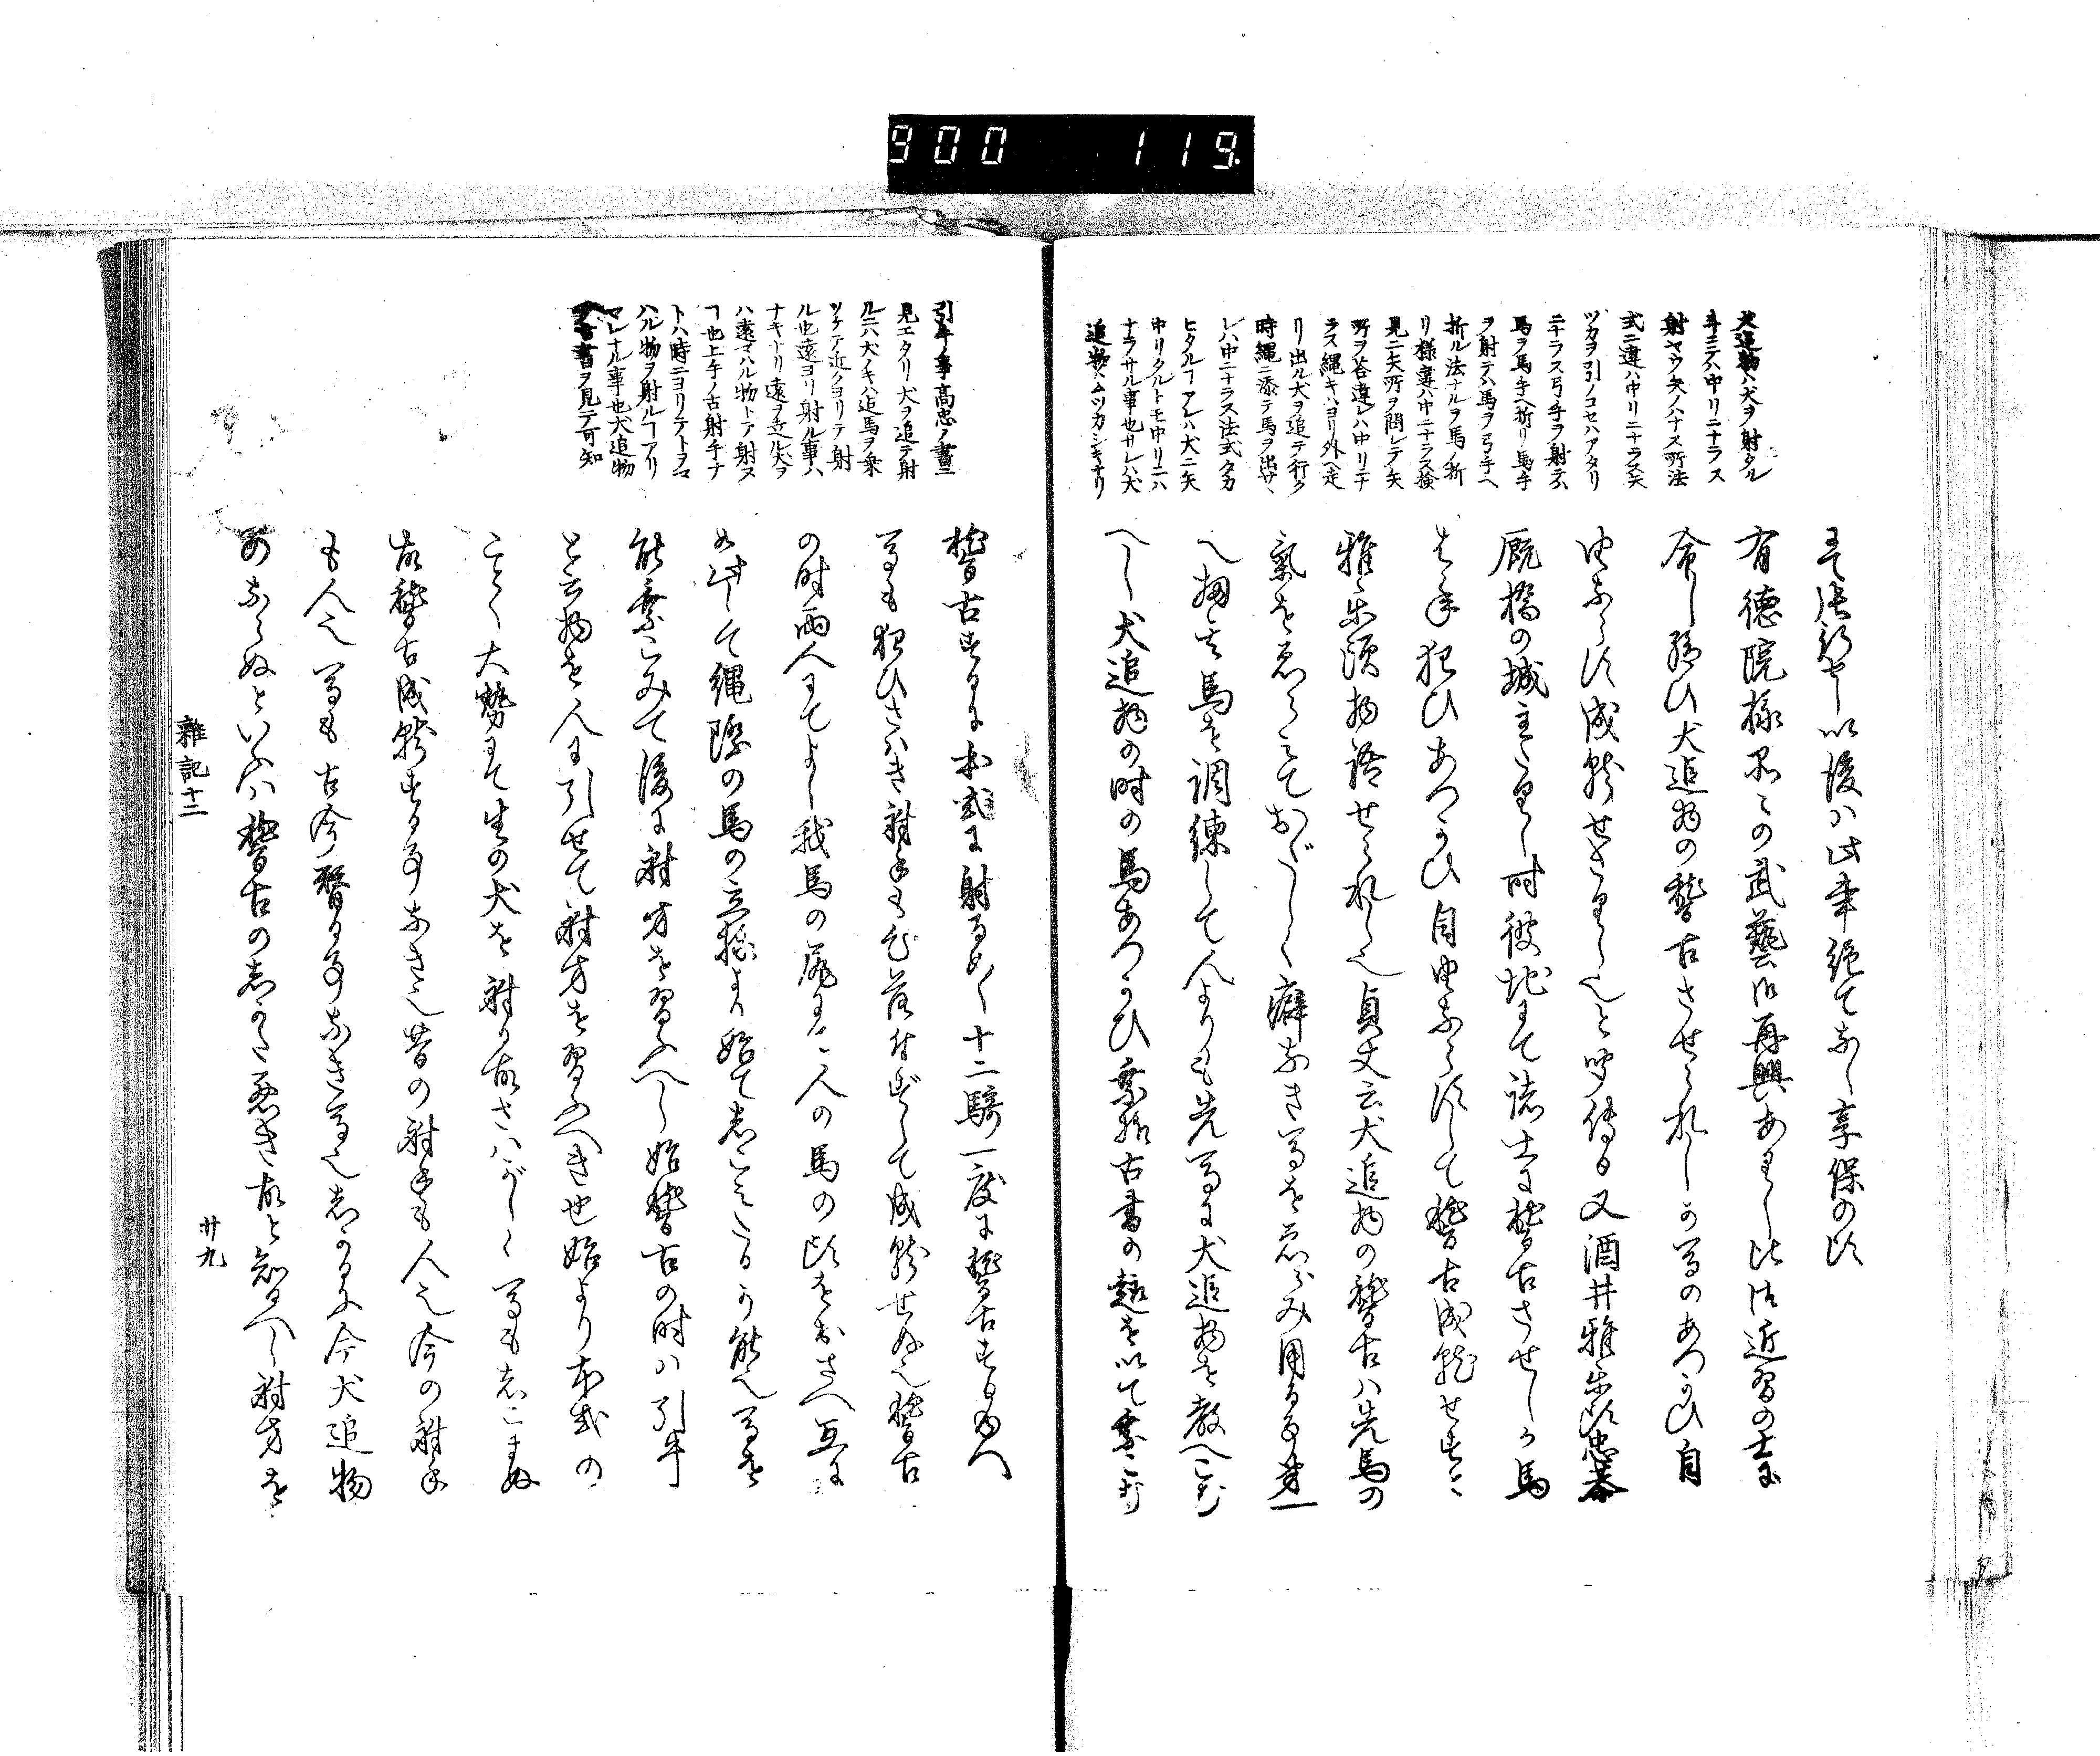 900 119
犬追物ハ犬ヲ射タル
斗ニテハ中リニナラス
射ヤウ矢ノハナス所法
式ニ違ハ中リニナラス矢
ツカヲ引ノコセハアタリ
ニナラス弓手ヲ射テハ
馬ヲ馬手ヘ折リ馬手
ヲ射テハ馬ヲ弓手ヘ
折ル法ナルヲ馬ノ折
リ様違ハ中ニナラス検
見ニ矢所ヲ問レテ矢
所ヲ答違レハ中リニナ
ラス縄キハヨリ外ヘ走
リ出ル犬ヲ追テ行ク
時縄ニ添テ馬ヲ出サヽ
レハ中ニナラス法式タカ
ヒタルヿアレハ犬ニ矢
中リタルトモ中リニハ
ナラサル事也サレハ犬
追物ハムツカシキナリ
以後ハ此事絶てなし享保の比
有徳院様 の武藝御再興ありし比御近習の士に
命し給ひ犬追物の稽古させられしか馬のあつかひ自
由ならす成就せさりしと聞傳る又酒井雅楽頭忠恭
厩橋の城主たりし時彼地にて諸士に稽古させしか馬
は手 ひあつかひ自由ならすして稽古成就せすと
雅楽頭物語せられし也貞丈云犬追物の稽古ハ先馬の
氣をゑらみておだしく癖なき馬をゑらみ用る事第一
へ 馬を調練して人よりも先馬に犬追物を教へこむ
へし犬追物の時の馬あつかひ乗様古書の趣を以て乗こむ
引年ノ事高忠ノ書ニ
見エタリ犬ヲ追テ射
ルニハ犬ノキハ迄馬ヲ乗
ツケテ近クヨリテ射
ル也遠ヨリ射ル事ハ
ナキナリ遠ヲ走ル犬ヲ
ハ遠マハル物トテ射ヌ
ヿ也上手ノ古射手ナ
トハ時ニヨリテトヲマ
ハル物ヲ射ルヿアリ
マレナル事也犬追物
古書ヲ見テ可知
稽古するに本式に射ることく十二騎一度に稽古する
馬も狂ひさハき射手も して成就せぬ也稽古
の時両人にてよし我馬の尾に 人の馬の頭をおさへ互に
如此して縄際の馬の立様より始て 能也馬を
能乗こみて後に射方を習ふへし始稽古の時ハ引年
と云物を人に引せて射方を習ふへき也始より本式の
ことく大勢にて生の犬を射る故さハがしく馬もしこまぬ
故稽古成就する事なき也昔の射手も人也今の射手
も人也馬も古今替る事なき馬也しかるに今犬追物
のならぬといふハ稽古のしかた悪き故と知るへし射方を
雑記十二
廿九